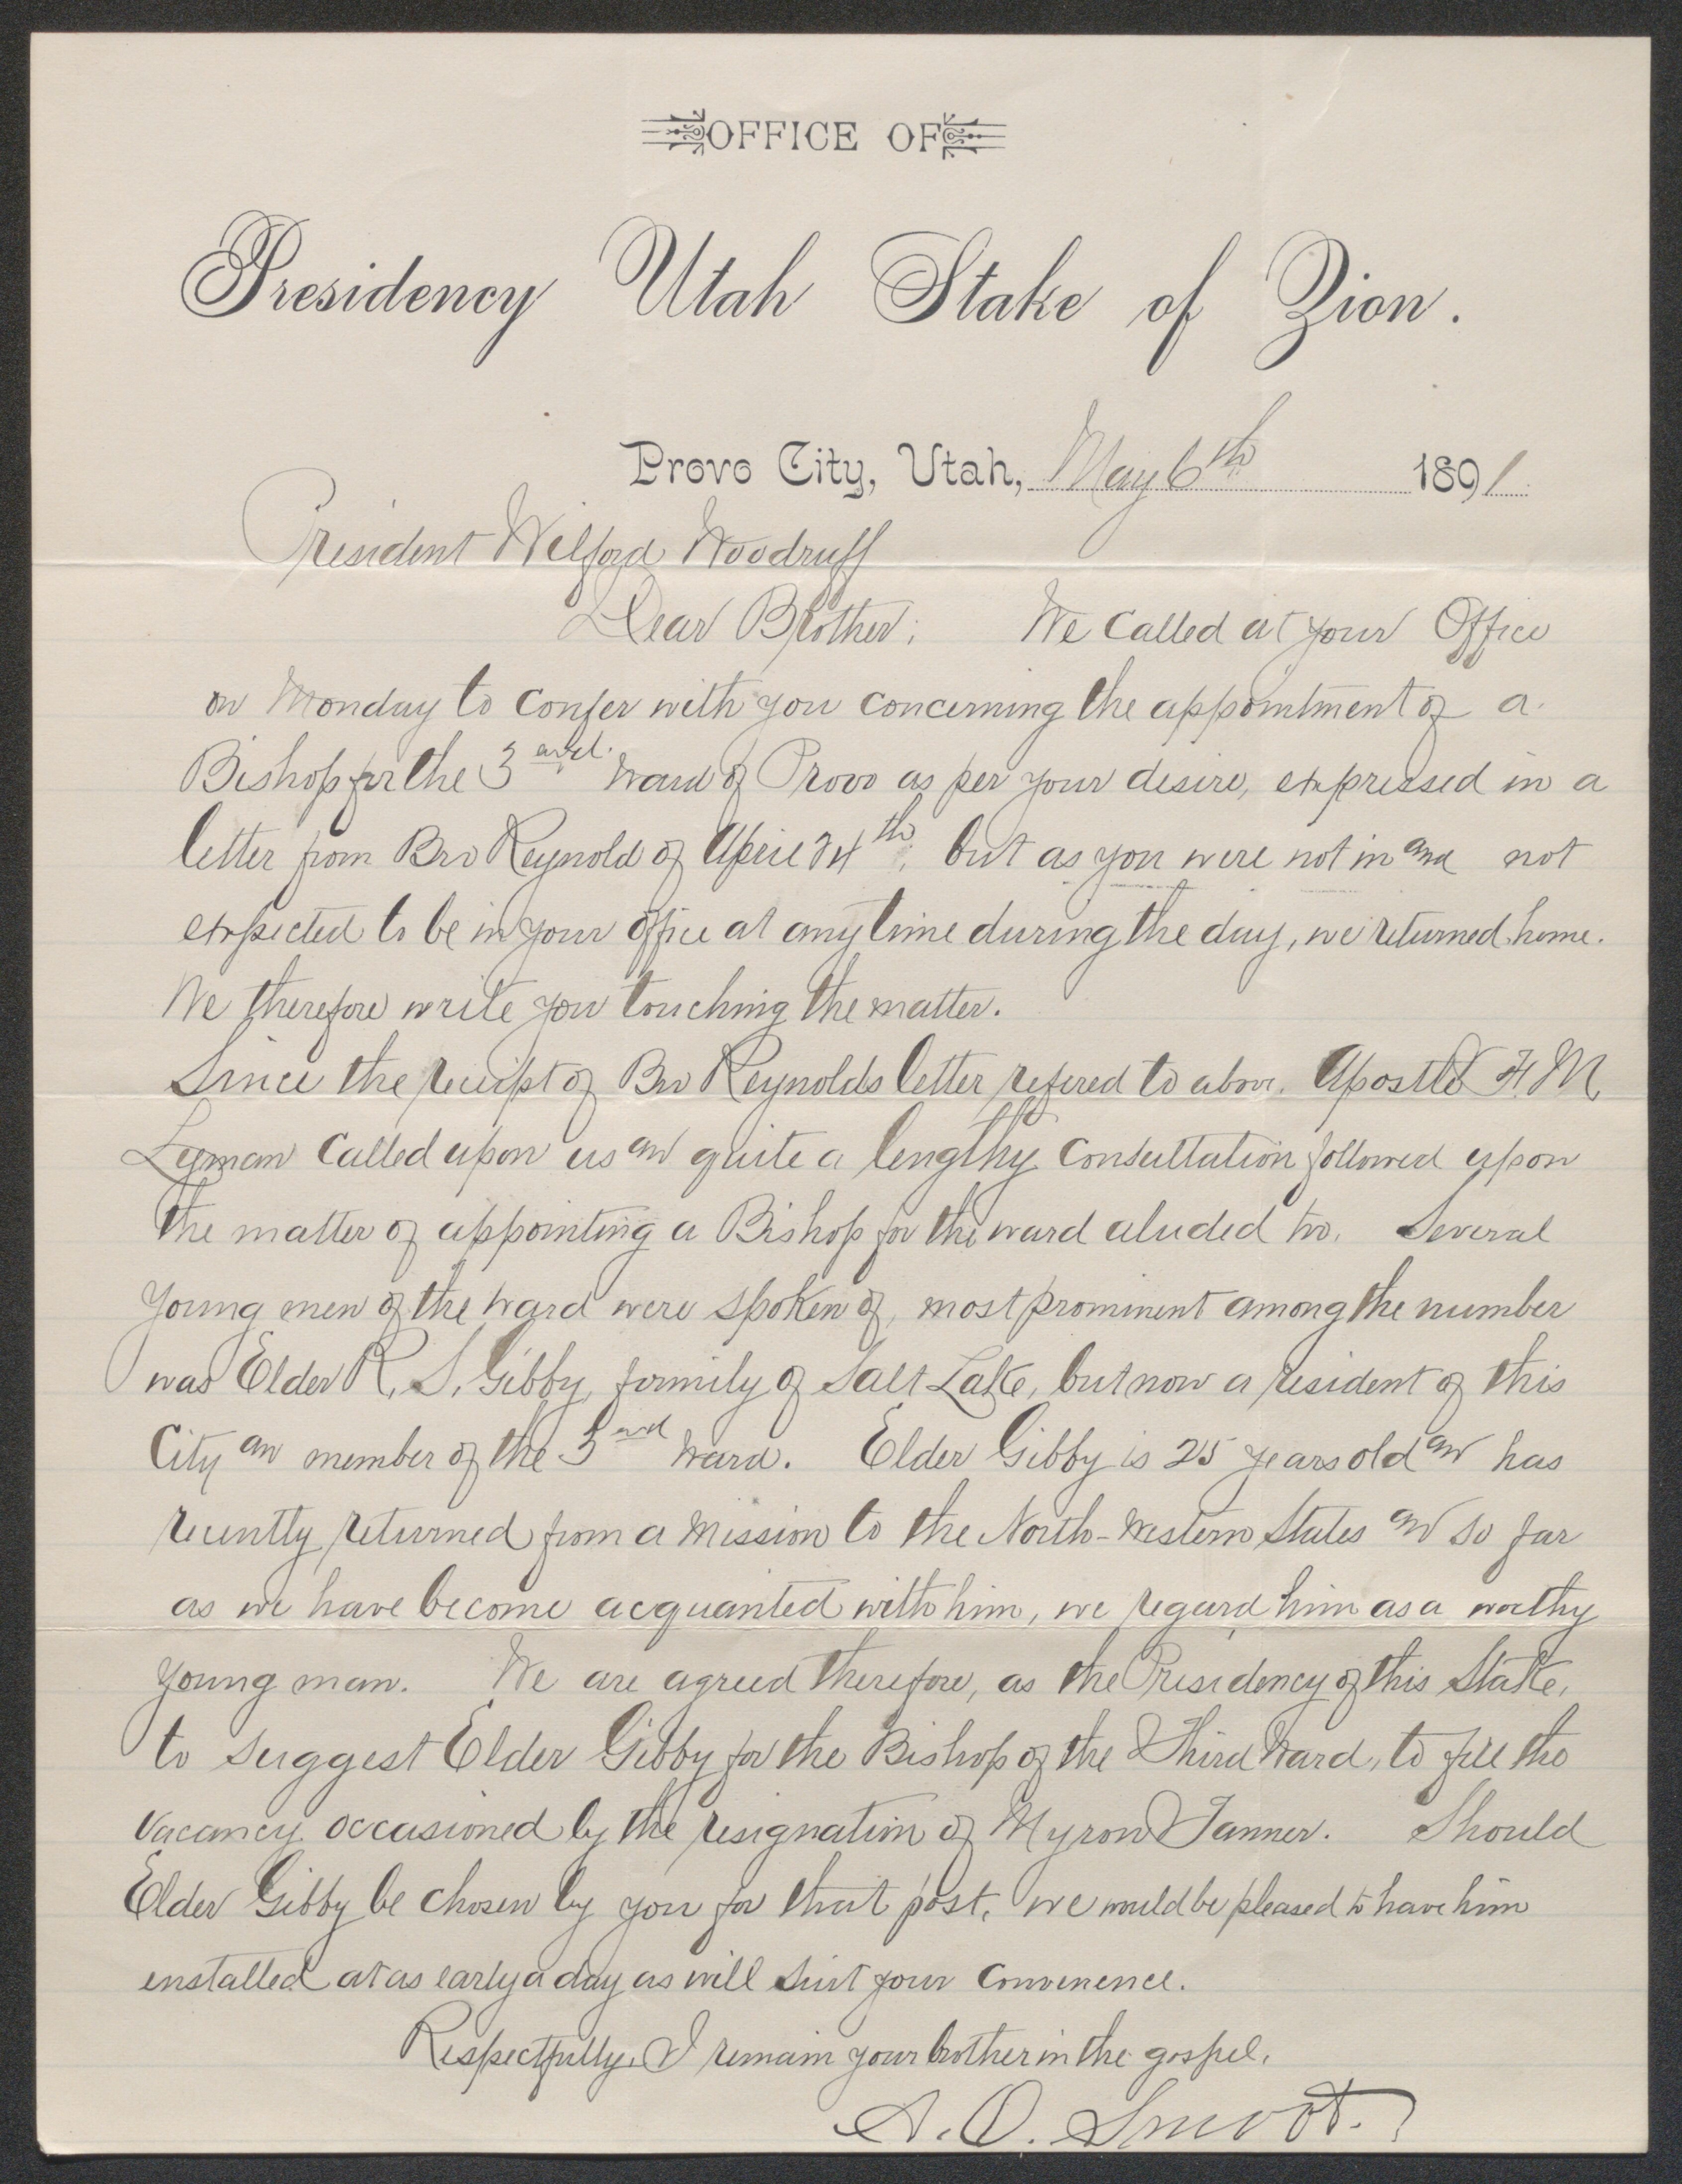 OFFICE OF
Presidency Utah Stake of Zion.
Provo City, Utah, May 6th 1891
President Wilford Woodruff
Dear Brother; We Called at your Office
on Monday to confer with you concerning the appointment of a
Bishop for the 3 ward of Provo as per your desire, expressed in a
letter from Bro Reynold of April 24th, but as you were not in and not
expected to be in your office at any time during the day, we returned home.
We therefore write you touching the matter.
Since the receipt of Bro Reynolds letter refered to above. Apostle F. M.
Lyman Called upon us and quite a lengthy Consultation followed upon
the matter of appointing a Bishop for the ward aluded too. Several
young men of the ward were spoken of, most prominent among the number
was Elder R. S. Gibby, formily of Salt Lake, but now a resident of this
City and member of the 3rd ward. Elder Gibby is 25 years old and has
recently returned from a mission to the North-Western States and so far
as we have become acquanted with him, we regard him as a worthy
young man. We are agreed therefore, as the Presidency of this Stake,
to suggest Elder Gibby for the Bishop of the Third Ward, to fill the
vacancy occasioned by the resignation of Myron Tanner. Should
Elder Gibby be chosen by you for that post, we would be pleased to have him
enstalled at as early a day as will suit your convenence.
Respectfully, I remain your brother in the gospel.
A. O. Smoot.